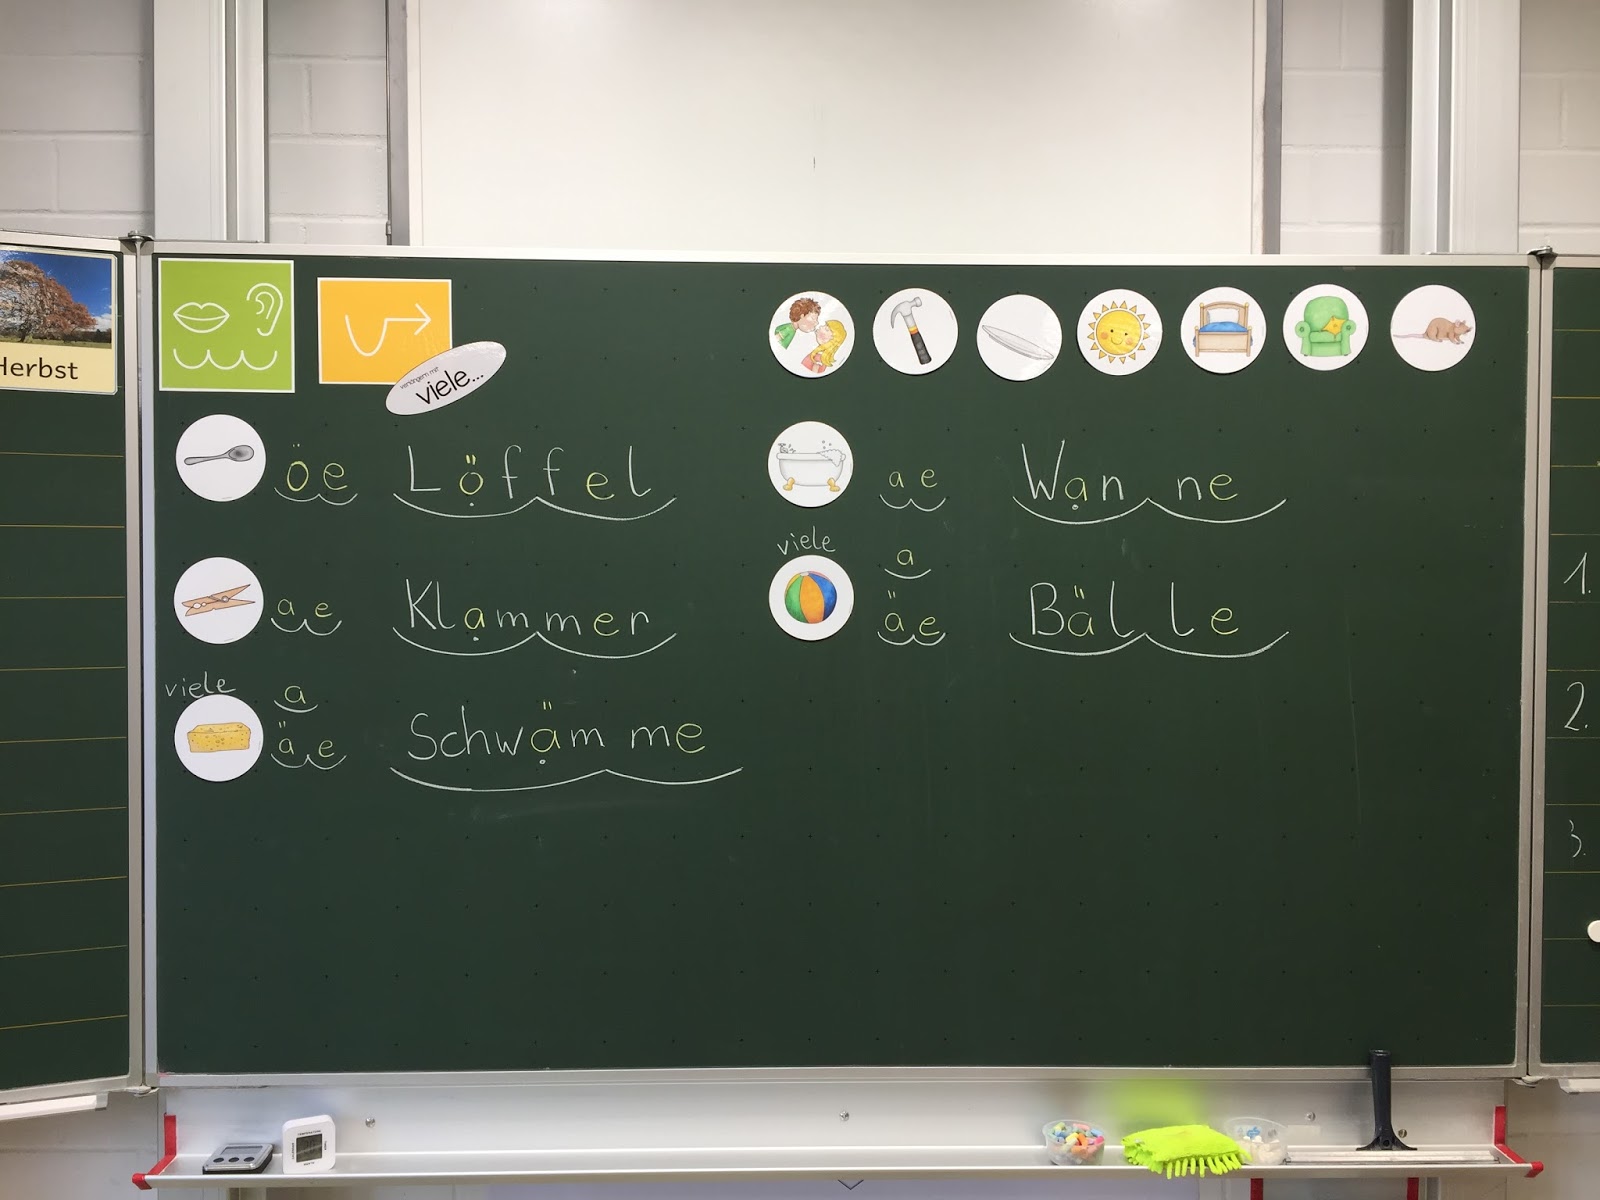 Herbst
verlängern mit
viele...
öe Löffel
ae Klammer
viele
a
äe Schwäm me
ae Wan ne
viele
a
äe Bälle
1.
2.
3.